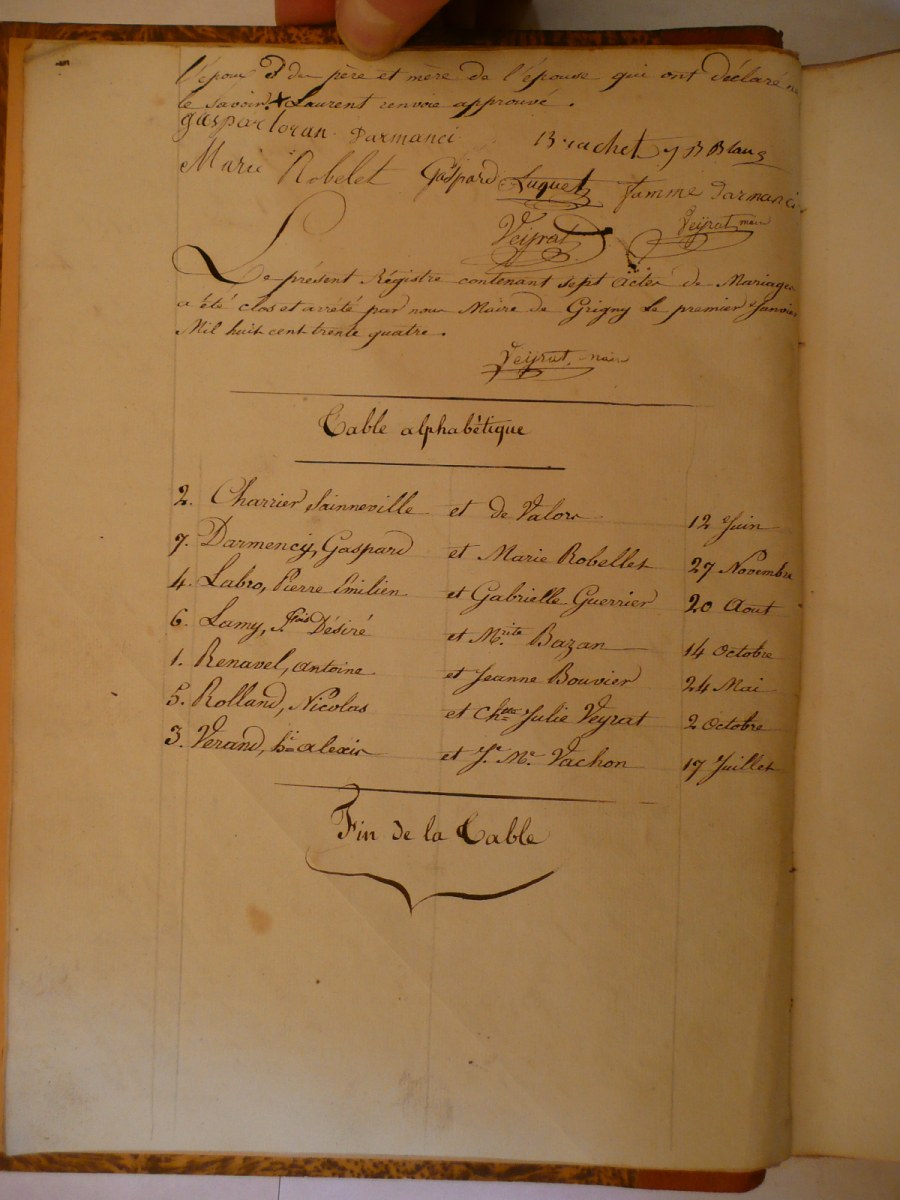 l'époux & des père et mère de l'épouse qui ont déclaré ne
le savoir. + Laurent renvoie approuvé.
gaspar loran Darmanci Brachet J B Blanc
Marie Robelet Gaspard Luquet famme Darmanci
Veÿrat Veÿrat maire
Le présent Régistre contenant sept actes de Mariages
a été clos et arrêté par nous Maire de Grigny le premier Janvier
Mil huit cent trente quatre.
Veÿrat maire
Table alphabétique
2. Charrier Sainneville et de Valors 12 Juin
7. Darmency, Gaspard et Marie Robellet 27 Novembre
4. Labro, Pierre Emilien et Gabrielle Guerrier 20 Aout
6. Lamy, Jn fçois Désiré et Mrite Bazan 14 Octobre
1. Renavel, antoine et Jeanne Bouvier 24 Mai
5. Rolland, Nicolas et Chtte Julie Veyrat 2 Octobre
3. Verand, alexis et Je Me Vachon 17 Juillet
Fin de la Table